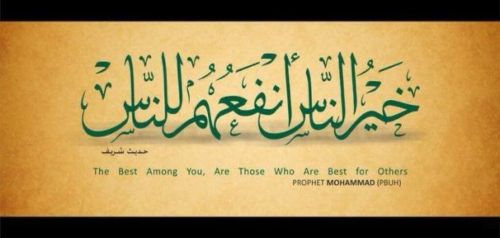 خَيْرُ النَّاسِ أَنفَعُهُم لِلنَّاسِ
حديث شريف
The Best Among You, Are Those Who Are Best for Others
PROPHET MOHAMMAD (PBUH)